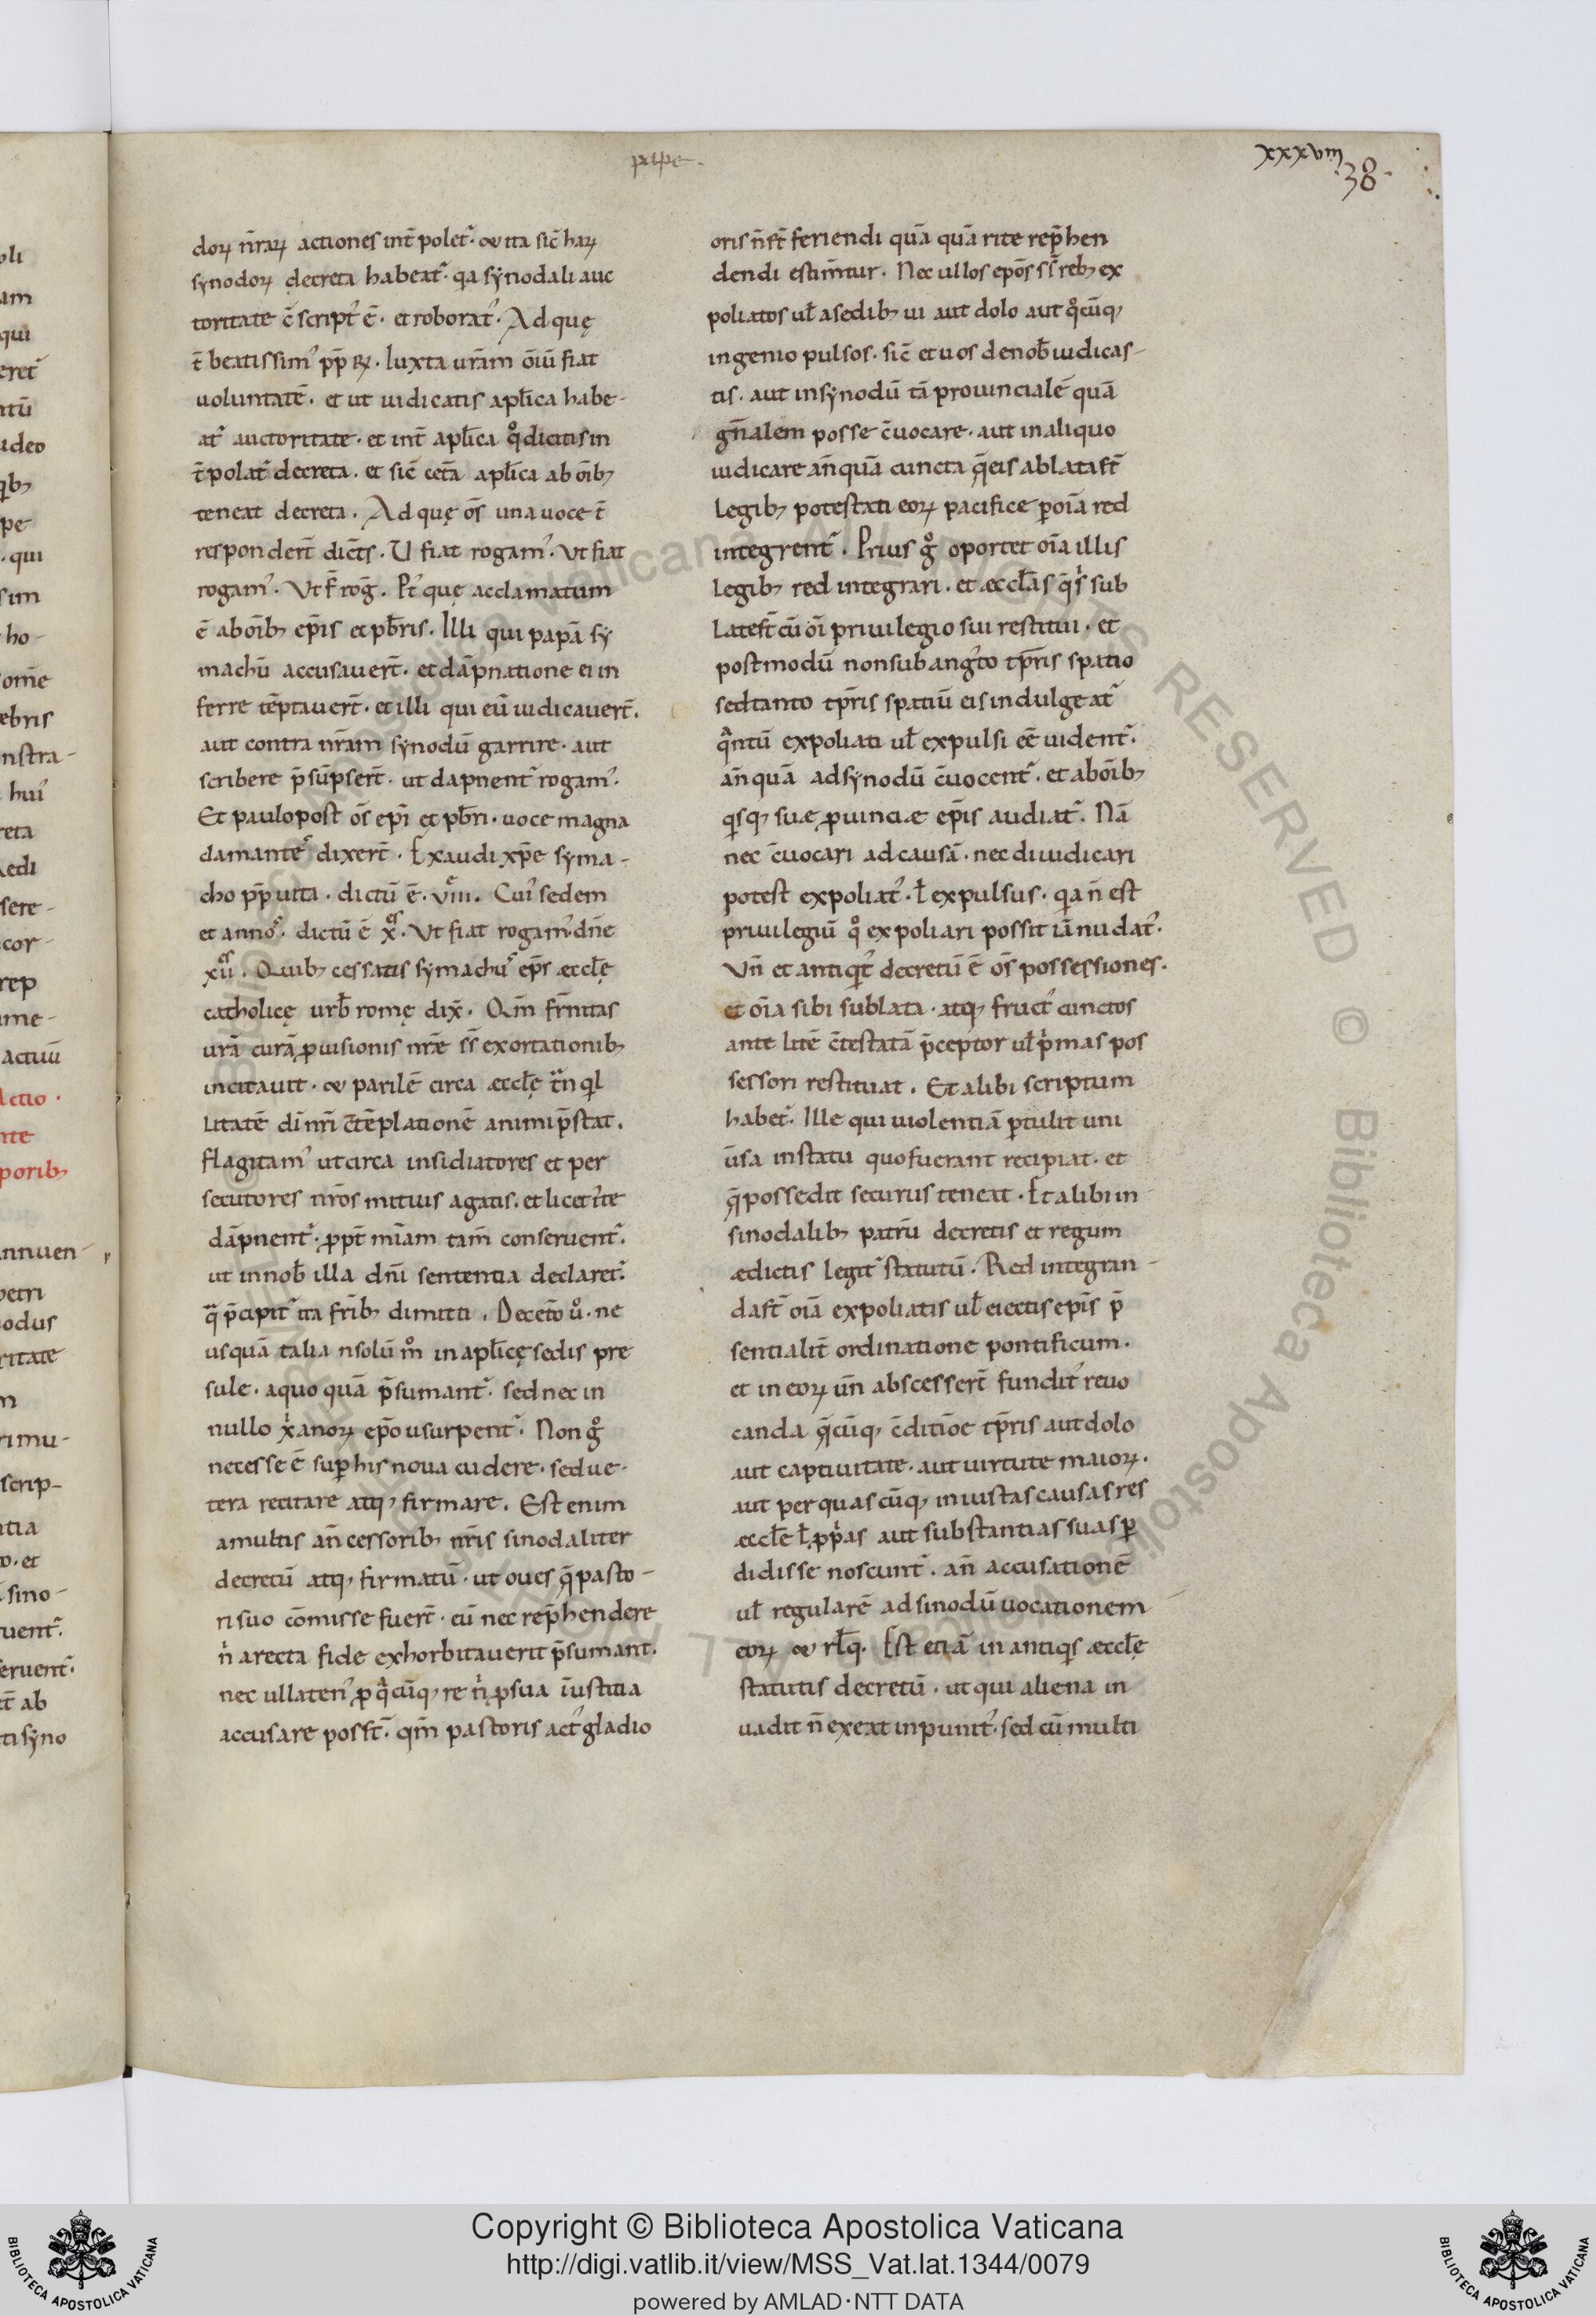 pape.
xxxviii
38.
doꝝ nr̄aꝝ actiones int̄ polet᷑. & ita sic̄ haꝝ
synodoꝝ decreta habeat᷑. qa synodali auc
toritate c̄scriptꝰ ē. et roboratꝰ. Ad quę
t̄ beatissimꝰ pp̄ ꝶ. Iuxta ur̄am oīū fiat
uoluntatē. et ut iudicatis apl̄ica habe-
at᷑ auctoritate. et int̄ apl̄ica qͦ dicitis in
t̄polat᷑ decreta. et sic̄ cet̄a apl̄ica ab oīb;
teneat decreta. Ad quę os̄ una uoce t̄
respondert̄ dic̄ts. U fiat rogamꝰ. Ut fiat
rogamꝰ. Ut f̄ roḡ. Ptꝰ quę acclamatum
ē ab oīb; ep̄is et pb̄ris. Illi qui papā sy
machū accusauert̄. et dāpnatione ei in
ferre tēptauert̄. et illi qui eū iudicauert̄.
aut contra nr̄am synodū garrire. aut
scribere p̄sūpsert̄. ut dapnent᷑ rogamꝰ.
Et paulo post os̄ epī et pb̄ri. uoce magna
clamanteꝰ dixert̄. Exaudi xp̄e syma-
cho pp̄ uita. dictū ē. viii. Cuiꝰ sedem
et annoˢ. dictū ē x. Ut fiat rogamꝰ dn̄e
xii. Quib; cessatis symachuꝰ ep̄s æccl̄ę
catholicę urb̄ romę dix̄. Qm̄ fr̄nitas
ur̄ā curā ꝓuisionis nr̄æ ss̄ exortationib;
incitauit. & parilē circa æccl̄ę t̄nqͥl
litatē dī nr̄i c̄tēplationē animi p̄stat.
flagitamꝰ ut circa insidiatores et per
secutores nr̄os mitius agatis. et licet ite
dāpnent᷑. ꝓpt̄ mīam tam̄ conseruent᷑.
ut in nob̄ illa dn̄i sententia declaret᷑.
q̄ p̄cipit᷑ ita fr̄ib; dimitti. Deceto uͦ. ne
usquā talia nsolū mͦ in apl̄icę sedis pre
sule. a quo quā p̄sumant᷑. sed nec in
nullo xͥanoꝝ ep̄o usurpent᷑. Non gͦ
necesse ē suꝑ his noua cudere. sed ue-
tera recitare atq; firmare. Est enim
a multis an̄cessorib; nr̄is sinodaliter
decretū atq; firmatū. ut oues q̄ pasto-
ri suo cōmisse fuert̄. eū nec rep̄hendere
nͥ a recta fide exhorbitauerit p̄sumant.
nec ullatenꝰ ꝓ qᵃcūq; re nͥ ꝓ sua īustitia
accusare posst̄. qm̄ pastoris actꝰ gladio
oris n̄ st̄ feriendi quā quā rite rep̄hen
dendi estim̄tur. Nec ullos epos̄ ss̄ reb; ex
poliatos ul̄ a sedib; ui aut dolo aut qͦcūq;
ingenio pulsos. sic̄ et uos de nob̄ iudicas-
tis. aut in synodū tā prouincialē quā
gn̄alem posse c̄uocare. aut in aliquo
iudicare an̄quā cuncta q̄ eis ablata st̄
Legib; potestati eoꝝ pacifice ꝑ oīa red
integrent᷑. Prius gͦ oportet oīa illis
Legib; red integrari. et æccl̄as qͣsˡ sub
Latest̄ cū oī priuilegio sui restitui. et
postmodū non sub angꝰto tp̄ris spatio
sed tanto tp̄ris spatiū eis indulgeat᷑
qᵃntū expoliati ul̄ expulsi eē uident᷑.
an̄quā ad synodū c̄uocent᷑. et ab oīb;
qͥsq; suæ ꝓuinciæ ep̄is audiat᷑. Nā
nec c̄uocari ad causā. nec diiudicari
potest expoliatꝰ. l̄ expulsus. qͥa n̄ est
priuilegiū qͦ expoliari possit iā nudatꝰ.
Un̄ et antiqͥtꝰ decretū ē os̄ possessiones.
et oīa sibi sublata. atq; fructꝰ cunctos
ante litē c̄testatā p̄ceptor ul̄ pͥmas pos
sessori restituat. Et alibi scriptum
habet᷑. Ille qui uiolentiā ꝑtulit uni
ūsa in statu quo fuerant recipiat. et
q̄ possedit securus teneat. Et alibi in
sinodalib; patrū decretis et regum
ædictis legit᷑ statutū. Red integran-
da st̄ oīa expoliatis ul̄ eiectis ep̄is p̄
sentialit̄ ordinatione pontificum.
et in eoꝝ un̄ abscessert̄ funditꝰ reuo
canda q̄cūq; c̄ditiōe tp̄ris aut dolo
aut captiuitate. aut uirtute maioꝝ.
aut per quascūq; iniustas causas res
æccl̄e l̄ ꝓpͥas aut substantias suas ꝑ
didisse noscunt᷑. an̄ accusationē
ul̄ regularē ad sinodū uocationem
eoꝝ & rl̄q. Est etiā in antiqͥs æccl̄ę
statutis decretū. ut qui aliena in
uadit n̄ exeat inpunitꝰ. sed cū multi
Copyright © Biblioteca Apostolica Vaticana
http://digi.vatlib.it/view/MSS_Vat.lat.1344/0079
powered by AMLAD·NTT DATA
BIBLIOTECA APOSTOLICA VATICANA
BIBLIOTECA APOSTOLICA VATICANA